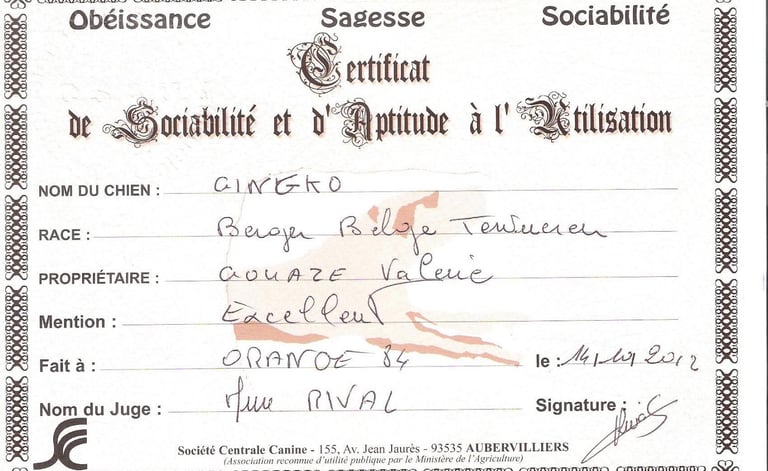 Obéissance Sagesse Sociabilité
Certificat
de Sociabilité et d'Aptitude à l'Utilisation
NOM DU CHIEN : GINGKO
RACE : Berger Belge Tervueren
PROPRIÉTAIRE : GOUAZE Valerie
Mention : Excellent
Fait à : ORANGE 84 le : 14/10/2012
Nom du Juge : Mme RIVAL Signature :
Société Centrale Canine - 155, Av. Jean Jaurès - 93535 AUBERVILLIERS
(Association reconnue d'utilité publique par le Ministère de l'Agriculture)